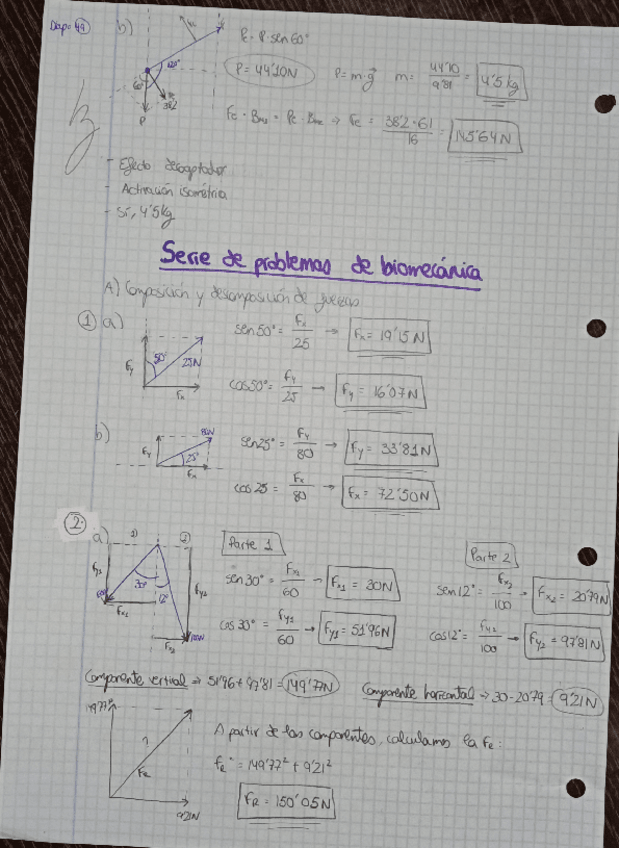 b)
Pc = P · sen 60°
120°
60°
P
P = 44'10N
P = m·g
m = 44'10 / 9'81 = 4'5 kg
Fc · Bmc = Pc · Bmc ⇒ Fc = 38'2 · 61 / 16 = 145'64 N
- Efecto descoaptador
- Activación isométrica
- Sí, 4'5kg
Serie de problemas de biomecánica
A) Composición y descomposición de fuerzas
① a)
Fy
50°
25N
Fx
sen 50° = Fx / 25 → Fx = 19'15 N
cos 50° = Fy / 25 → Fy = 16'07 N
b)
80N
Fy
25°
Fx
sen 25° = Fy / 80 → Fy = 33'81 N
cos 25 = Fx / 80 → Fx = 72'50 N
② a)
Fy1
30°
12°
Fy2
Fx1
Fx2
Parte 1
sen 30° = Fx1 / 60 → Fx1 = 30N
cos 30° = Fy1 / 60 → Fy1 = 51'96N
Parte 2
sen 12° = Fx2 / 100 → Fx2 = 20'79 N
cos 12° = Fy2 / 100 → Fy2 = 97'81 N
Componente vertical ⇒ 51'96 + 97'81 = 149'77N
Componente horizontal → 30 - 20'79 = 9'21 N
149'77N
?
FR
9'21N
A partir de las componentes, calculamos la FR:
FR² = 149'77² + 9'21²
FR = 150'05 N